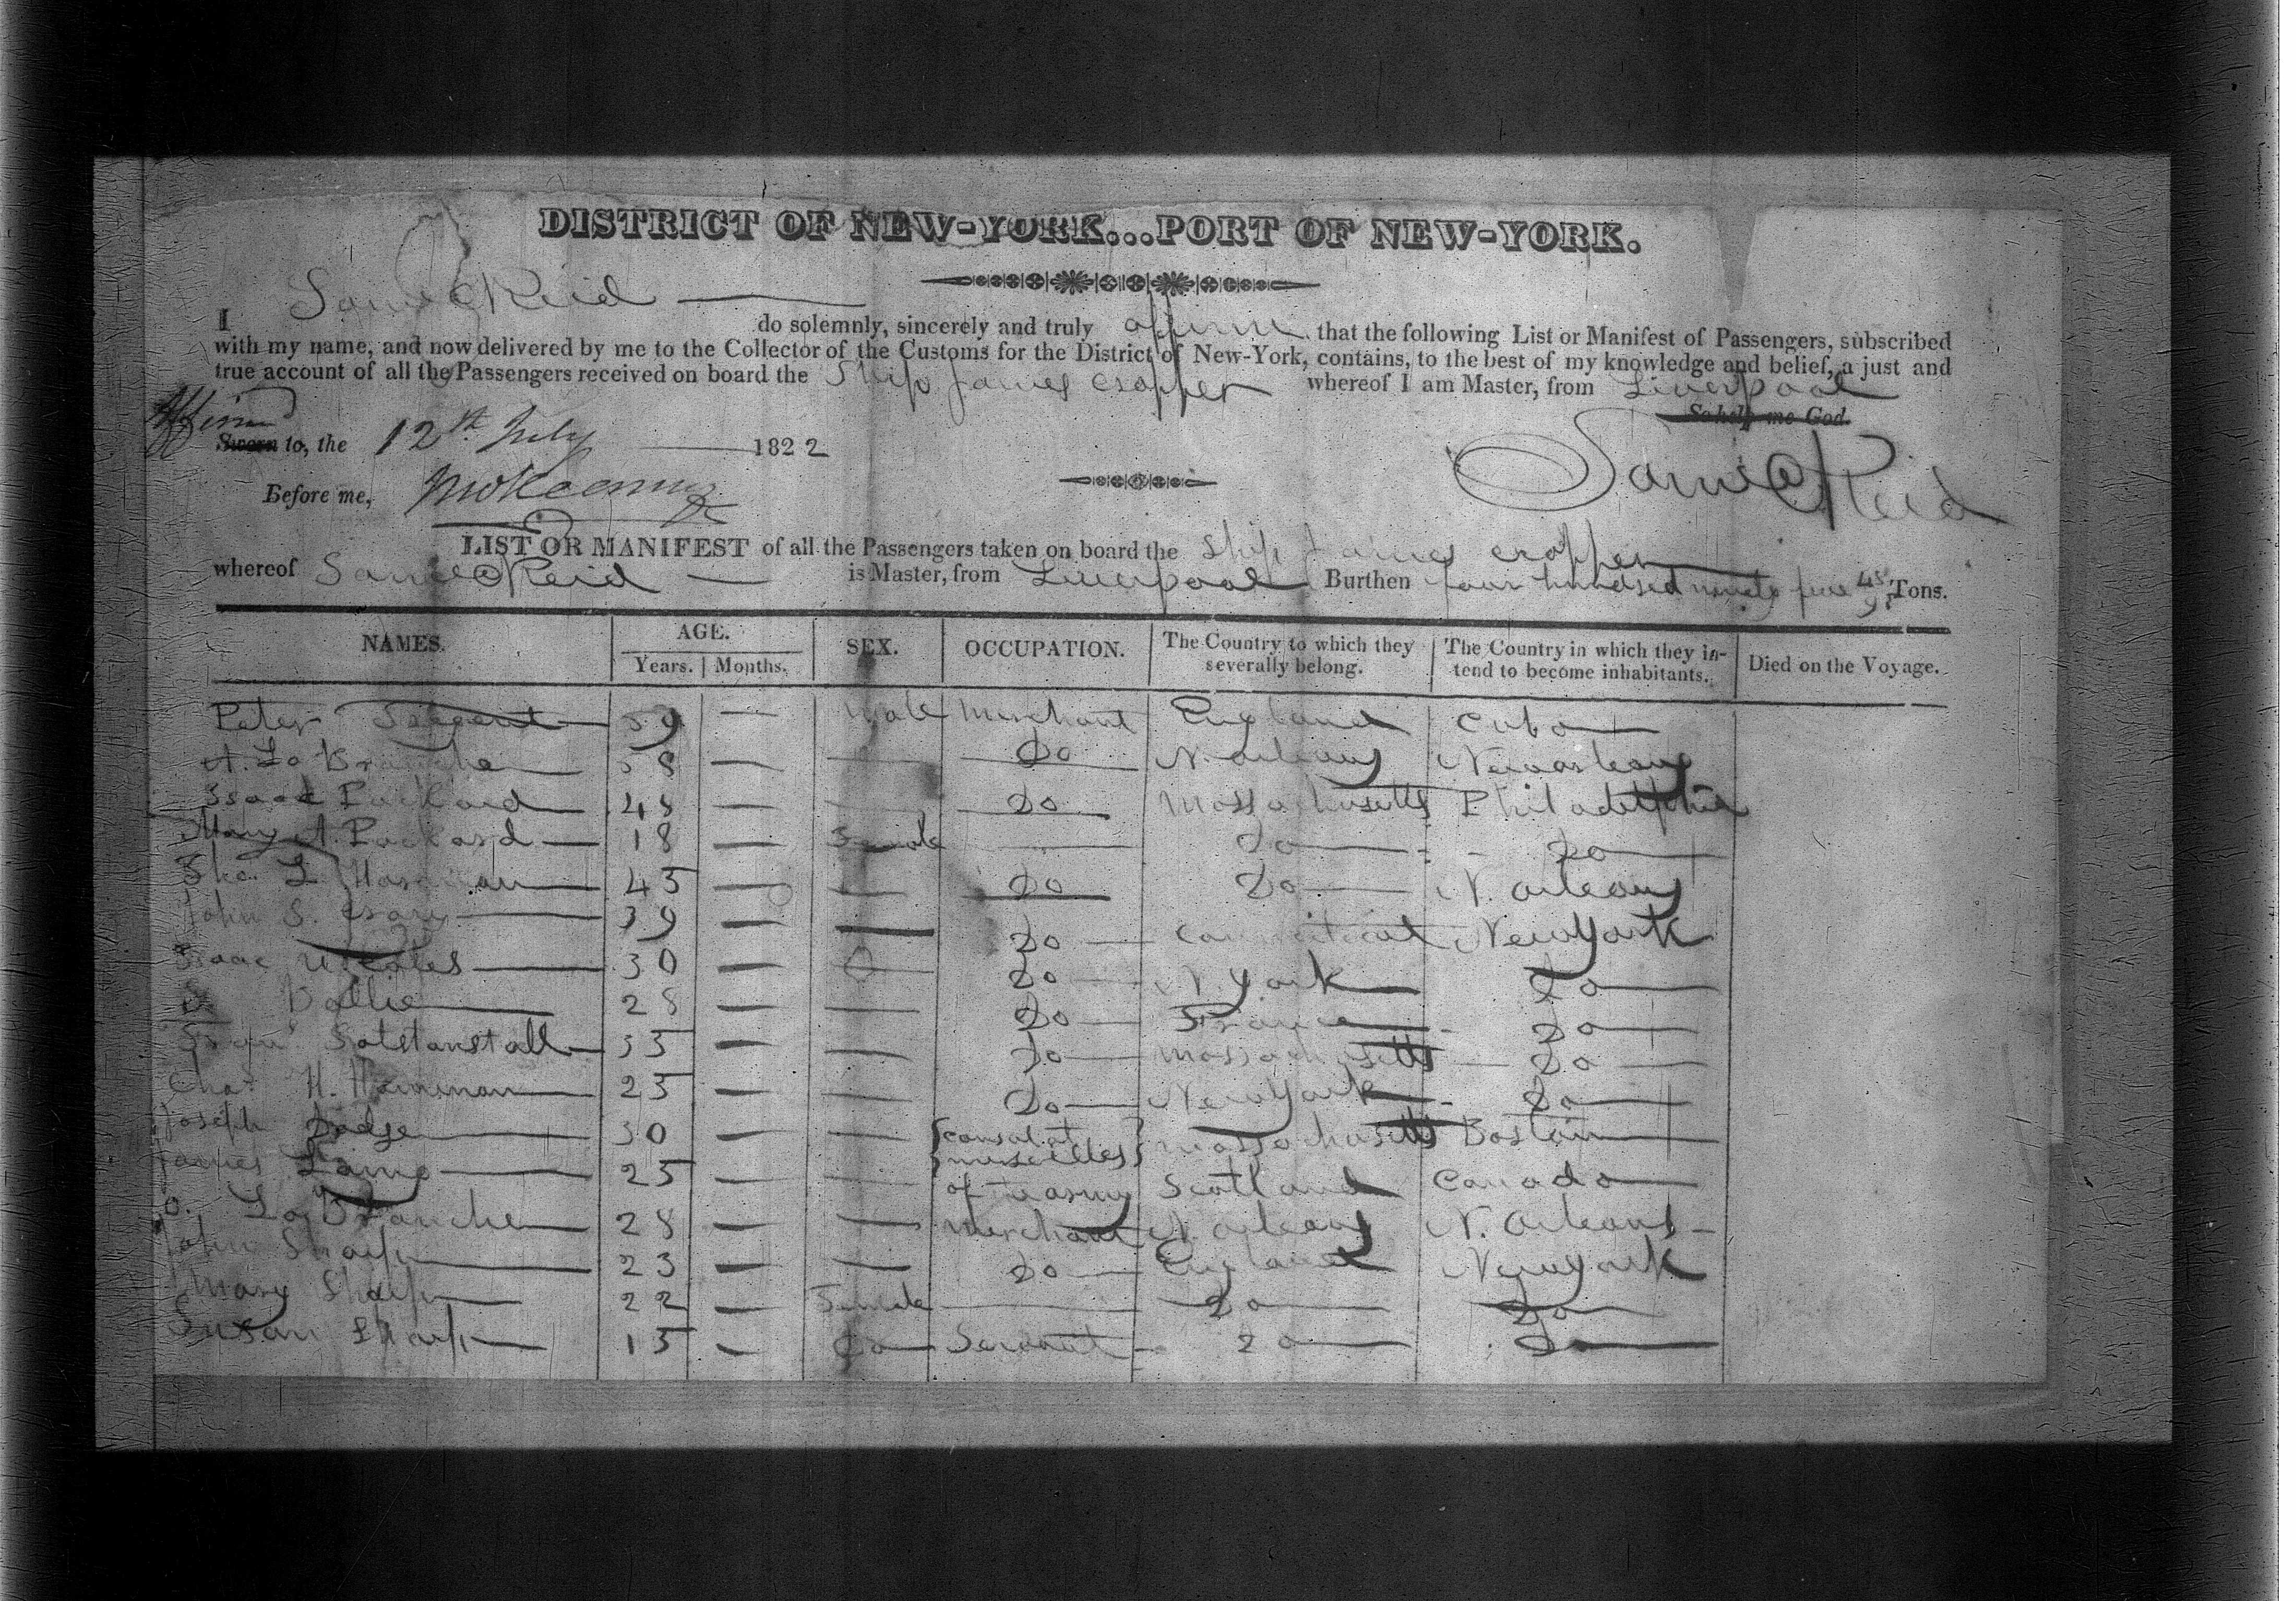 DISTRICT OF NEW-YORK...PORT OF NEW-YORK.
I Saml Reid do solemnly, sincerely and truly affirm that the following List or Manifest of Passengers, subscribed
with my name, and now delivered by me to the Collector of the Customs for the District of New-York, contains, to the best of my knowledge and belief, a just and
true account of all the Passengers received on board the Ship James Cropper whereof I am Master, from Liverpool
So help me God.
Affirmd
Sworn to, the 12th July 1822
Saml Reid
Before me,
LIST OR MANIFEST of all the Passengers taken on board the Ship James Cropper
whereof Saml Reid is Master, from Liverpool Burthen four hundred ninety five 45 Tons.
NAMES. AGE. SEX. OCCUPATION. The Country to which they severally belong. The Country in which they intend to become inhabitants. Died on the Voyage.
Years. Months.
Peter Sargent 59 — Male Merchant England Cuba
A. La Branche 58 — — Do N. Orleans New Orleans
Isaac Packard 48 — — Do Massachusetts Philadelphia
Mary A. Packard 18 — Female — Do Do
L. 45 — — Do Do N. Orleans
John S. 39 — — Do Connecticut New York
Isaac 30 — — Do N. York Do
28 — — Do France Do
Saltonstall 35 — — Do Massachusetts Do
Chas H. 25 — — Do New York Do
Joseph Dodge 30 — — Consul at Marseilles Massachusetts Boston
James Laing 25 — — of Scotland Canada
La Branche 28 — — Merchant N. Orleans N. Orleans
John Sharp 23 — — Do England New York
Mary Sharp 22 — Female — Do Do
Susan Sharp 15 — Do Servant Do Do